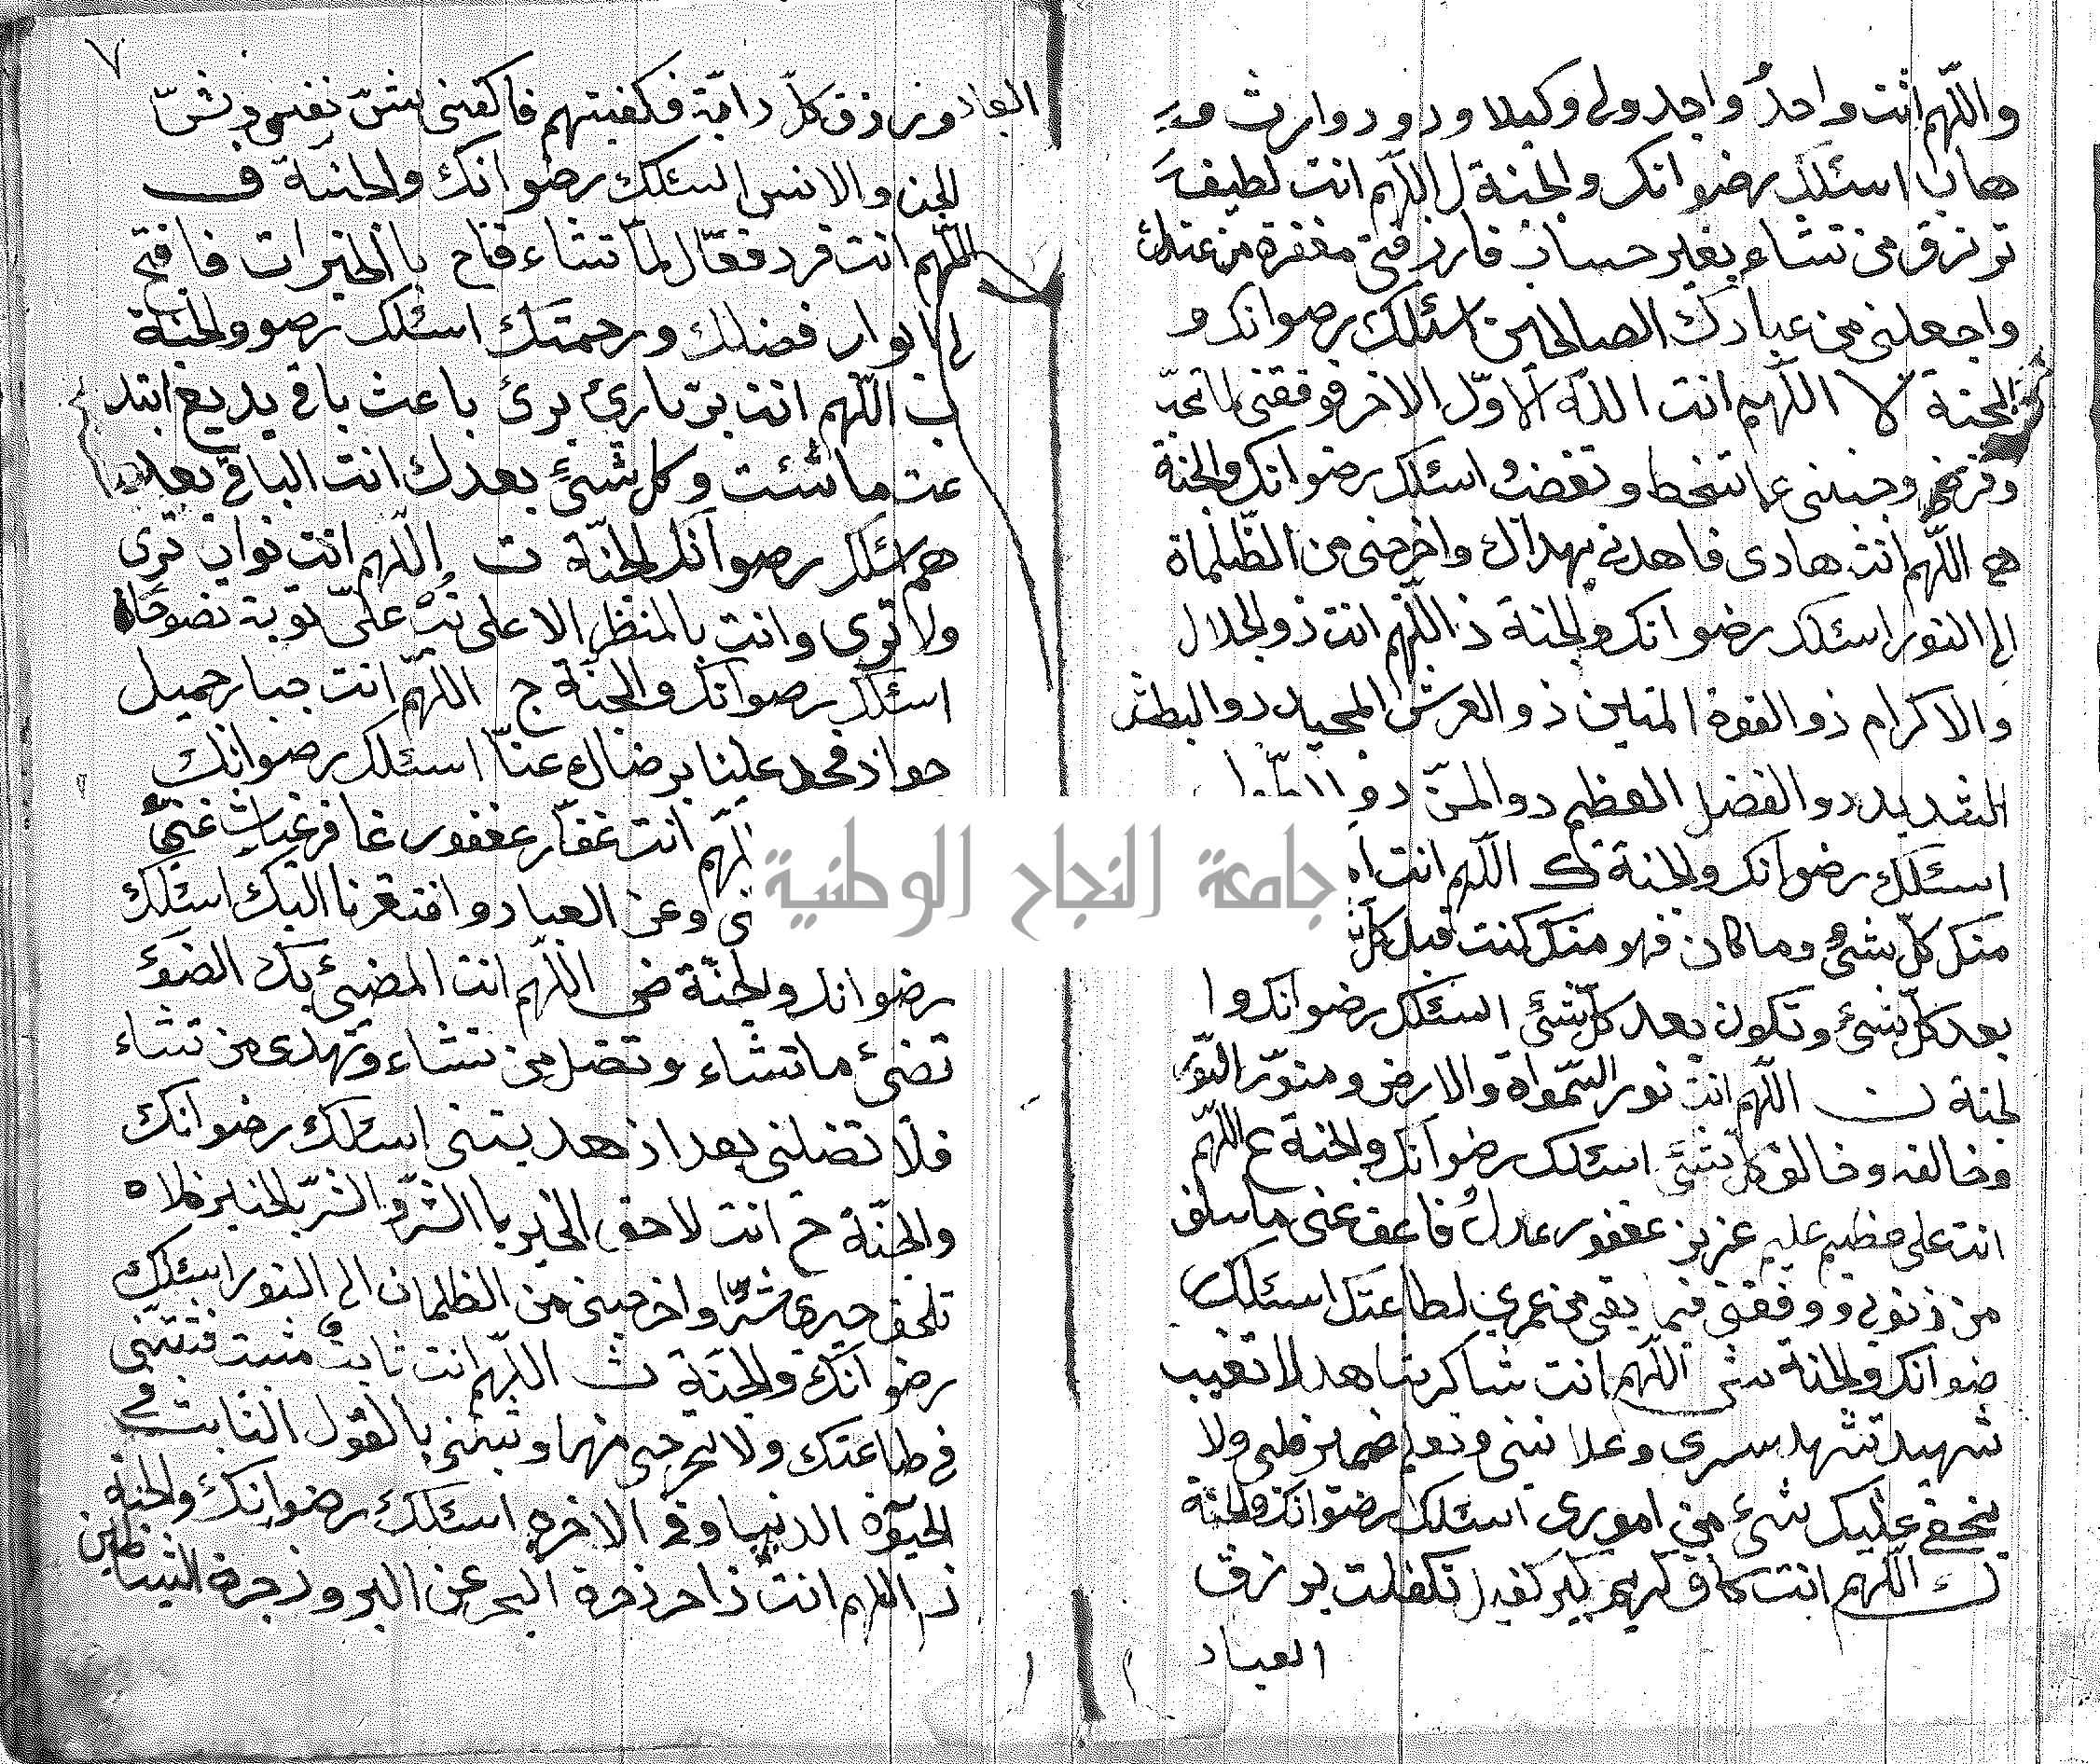 واللّهم انت واحدُ واجد ولى وكيلا ودود وارث و
هاب اسئلك رضوانك والجنة ل اللّهم انت لطيف
ترزق من تشاء بغير حساب فارزقنى مغفرة من عندك
واجعلنى من عبادك الصالحين اسئلك رضوانك و
الجنة لا اللّهم انت اللّه الاوّل الاخر فوفقنى لما تحبّ
وترضى وجنبنى عما تسخط وتغضب اسئلك رضوانك والجنة
ه اللّهم انت هادى فاهدنى بهداك واخرجنى من الظّلماة
الى النور اسئلك رضوانك والجنة ذ اللّهم انت ذو الجلال
والاكرام ذو القوة المتين ذو العرش المجيد ذو البطش
الشديد ذو الفضل العظيم ذو المنّ ذو
اسئلك رضوانك والجنة ك اللّهم انت
منك كلّ شئ وما كان فهو منك كنت قبل كلّ
بعد كلّ شئ وتكون بعد كلّ شئ اسئلك رضوانك وا
لجنة ن اللّهم انت نور السّمواة والارض ومنوّر النّور
وخالقه وخالق كلّ شئ اسئلك رضوانك والجنة ع اللّهم
انت على عظيم عليم عزيز غفور عدلُ فاعف عنى ما سلف
من ذنوبى ووفقنى فيما بقى من عمرى لطاعتك اسئلك ر
ضوانك والجنة ش اللّهم انت شاكر شاهد لا تغيب
شهيد تشهد سرى وعلانيتى وتعلم ضمير قلبى ولا
يخفى عليك شئ من امورى اسئلك رضوانك والجنة
ك اللّهم انت كافى كريم كبير كفيل تكفلت برزق
العباد
٧
العباد ورزق كلّ دابّة فكفيتهم فاكفنى شرّ نفسى وشرّ
الجن والانس اسئلك رضوانك والجنّة ف
اللّهم انت فرد فعّال لمّا تشاء فتاح باالخيرات فافتح
لى ابواب فضلك ورحمتك اسئلك رضو والجنّة
ب اللّهم انت برّ بارئ برئ باعث باقى بديع ابتد
عت ما شئت وكل شئ بعدك انت الباقى بعد
هم اسئلك رضوانك الجنّة ت اللهم انت تواب ترى
ولا ترى وانت بالمنظر الاعلى تب علىّ توبة نصوحاً
اسئلك رضوانك والجنّة ج اللّهم انت جبار جميل
جواد فجد علينا برضاك عنّا اسئلك رضوانك
لّهم انت غفّار غفور غافر غياث غنىّ
نى وعن العباد وافتقرنا اليك اسئلك
رضوانك والجنّة ض اللّهم انت المضئ بك الضوء
تضئ ما تشاء وتضل من تشاء وتهدى من تشاء
فلا تضلنى بعد اذ هديتنى اسئلك رضوانك
والجنّة خ انت لاحق الخير باالشرّ والشرّ بالخير فلا
تلحق خيرى شرّا واخرجنى من الظلمات الى النور اسئلك
رضوانك والجنّة ث اللّهم انت ثابت مثبت فثبتنى
فى طاعتك ولا تخرجنى منها وثبتنى بالقول الثابت فى
الحيوٰة الدنيا وفى الاخره اسئلك رضوانك والجنة
ز اللهم انت زاجر زجرة البحر عن البر وزجرة الشياطين
جامعة النجاح الوطنية